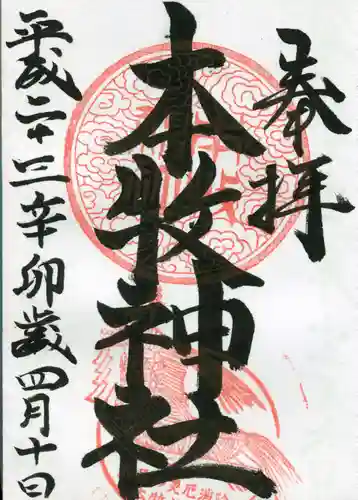 奉拝
本牧神社
平成二十三辛卯歳四月十日